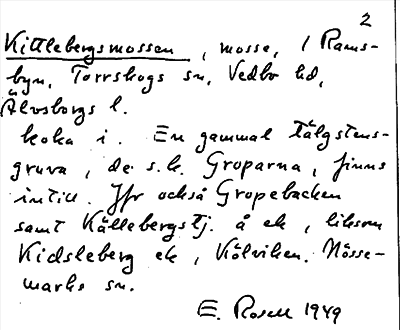 2
Kittlebergsmossen, mosse, i Rams-
byn, Torrskogs sn, Vedbo hd,
Älvsborgs l.
koka i. En gammal tälgstens-
gruva, de s.k. Groparna, finns
intill. Jfr också Gropebacken
samt Källebergstj. å ek, liksom
Kidsleberg ek, Kölviken. Nösse-
marks sn.
E. Rosell 1949